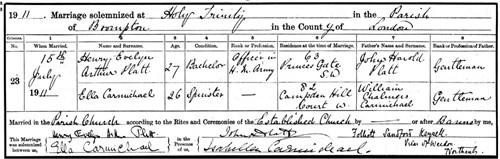 1911. Marriage solemnized at Holy Trinity in the Parish
of Brompton in the County of London
Columns:— 1 2 3 4 5 6 7 8
No. When Married. Name and Surname. Age. Condition. Rank or Profession. Residence at the time of Marriage. Father's Name and Surname. Rank or Profession of Father.
23 15th July 1911 Henry Evelyn Arthur Platt 27 Bachelor Officer in H.M. Army 63 Princes Gate S.W. John Harold Platt Gentleman
Ella Carmichael 26 Spinster — 82 Campden Hill Court W. William Chalmers Carmichael Gentleman
Married in the Parish Church according to the Rites and Ceremonies of the Established Church by — or after Banns by me,
This Marriage was solemnized between us, Henry Evelyn Arthur Platt Ella Carmichael in the Presence of us, John H Platt Isabella Carmichael Folliott Sandford Vicar of Northants.